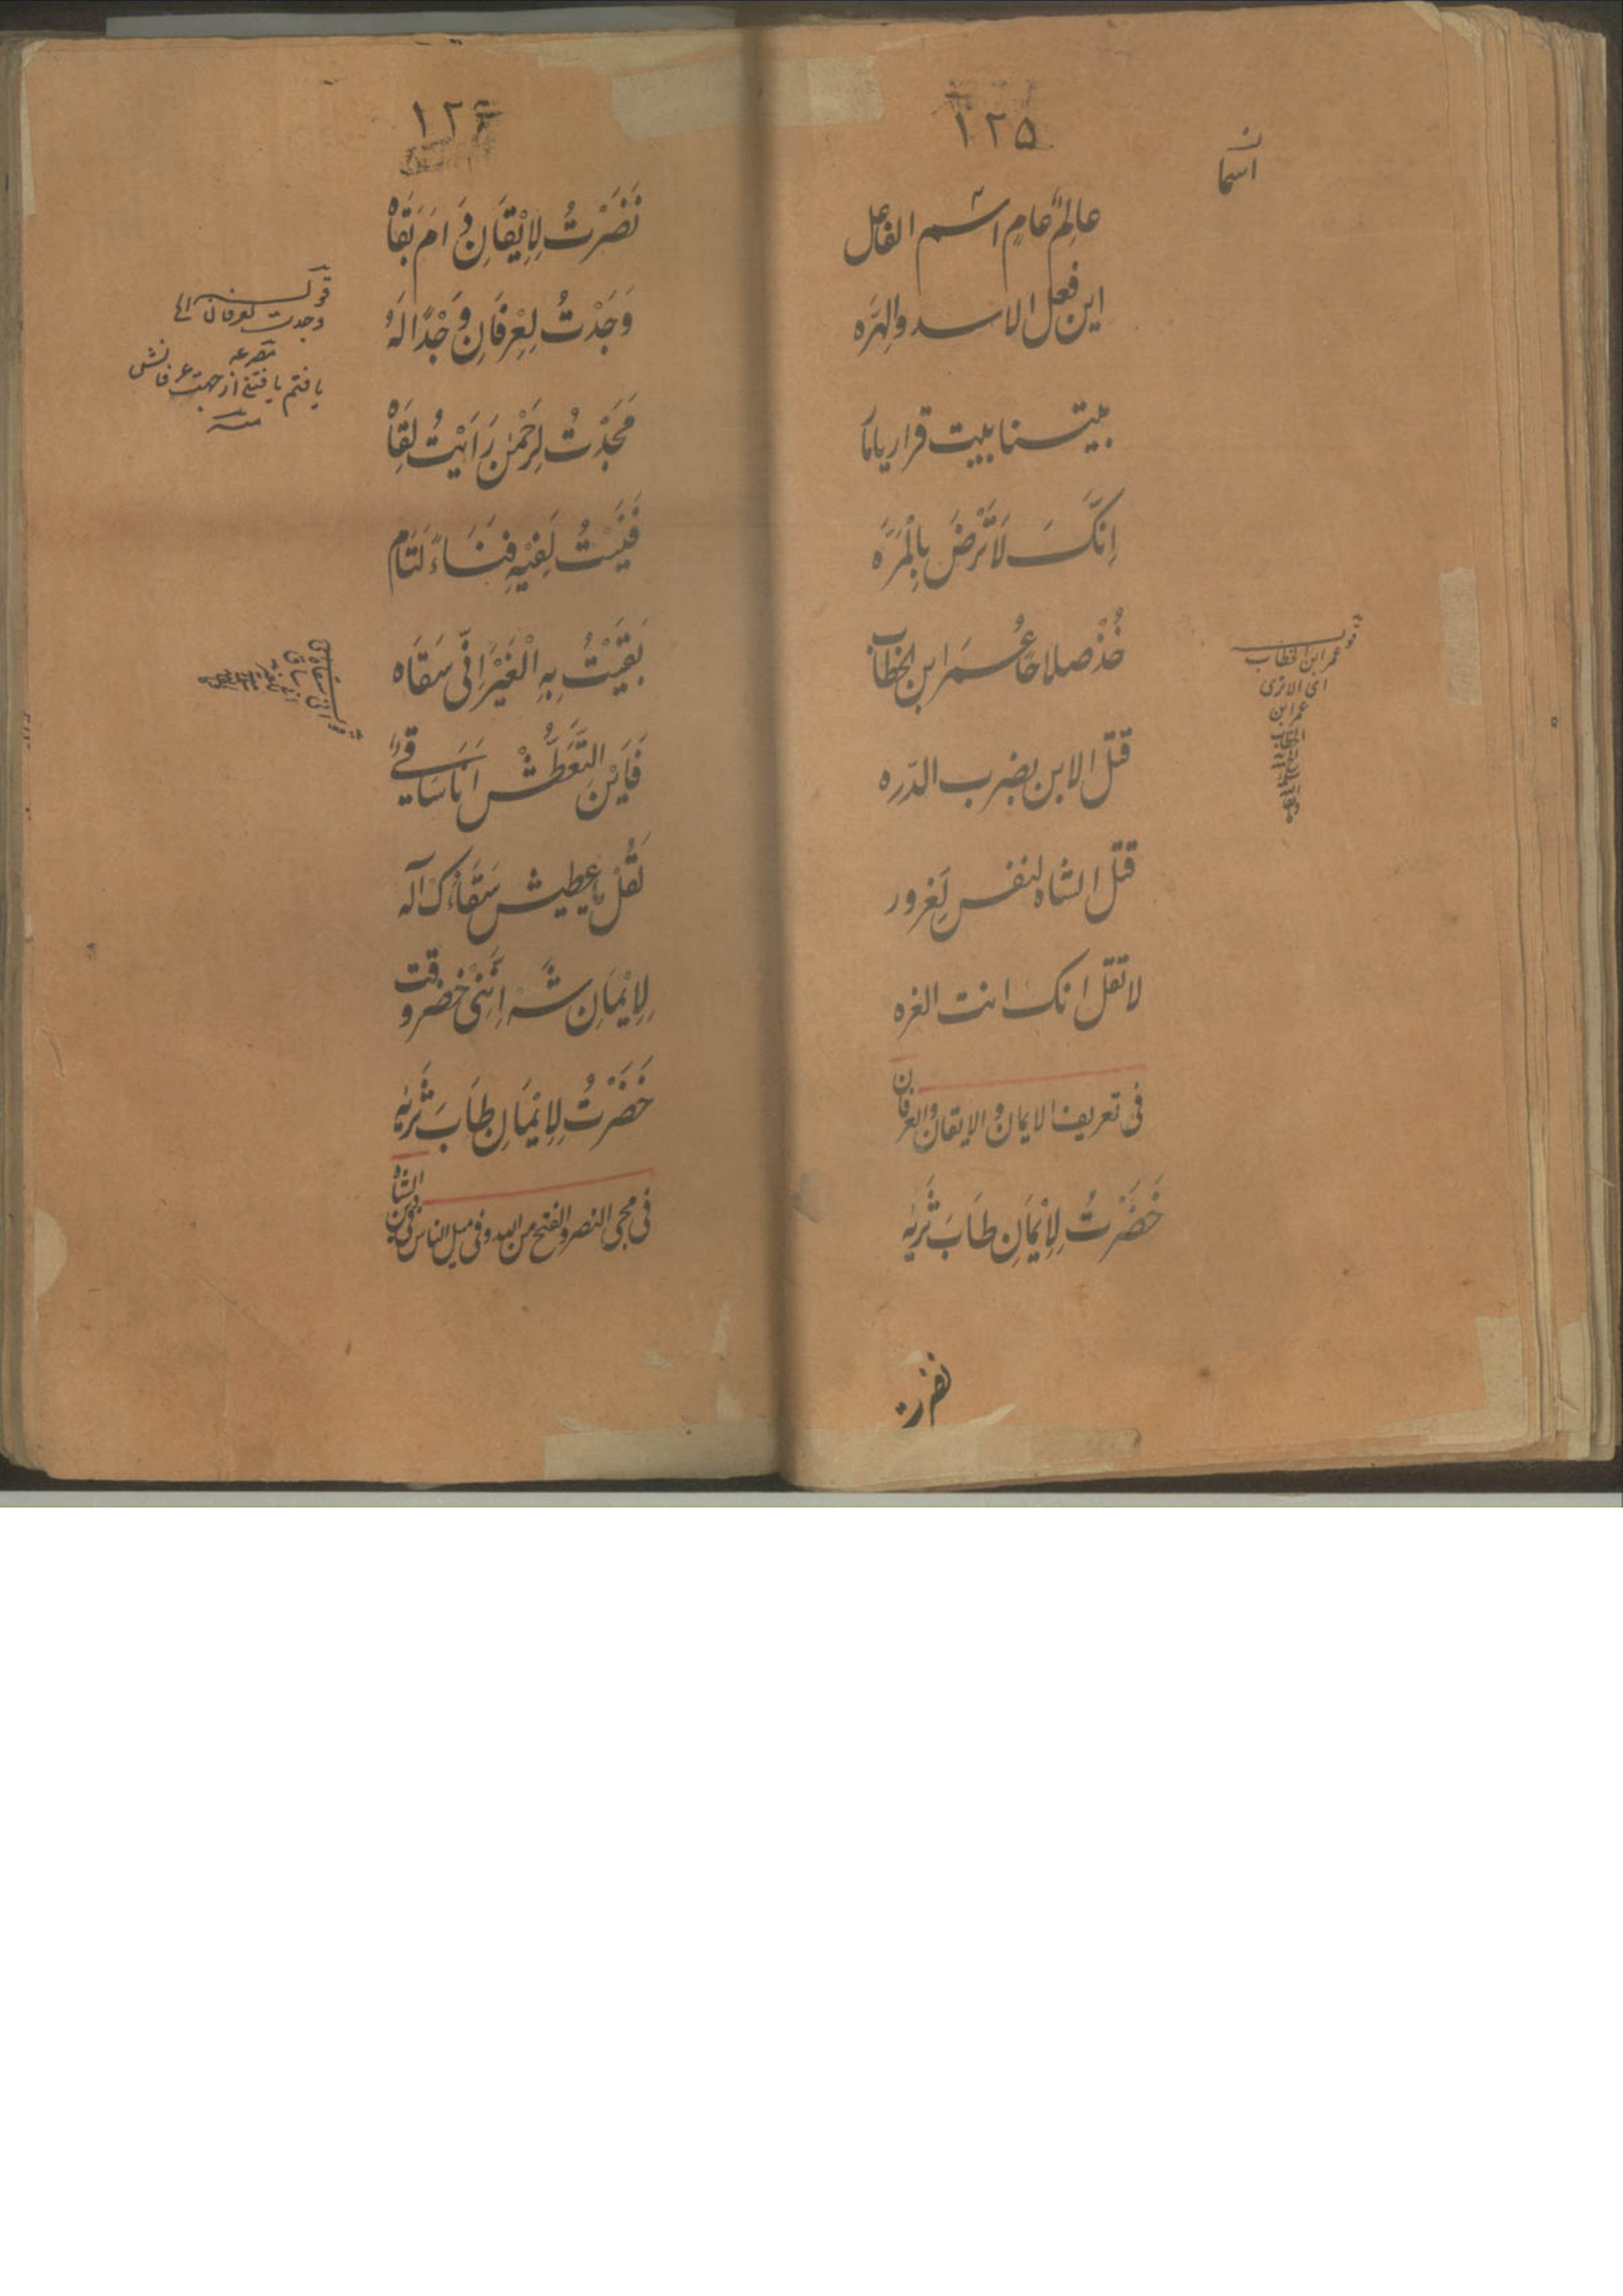 ۱۲۵
عالِمٌ عامٍ اسم الفاعل
این فعل الاسد والهِرَّه
بیتنا بیت قرار یا
اِنَّکَ لَا تَرْضَ بِالْمَرَّه
خُذْ صلاحًا عُمَر ابن الخطاب
قتل الابن بضرب الدّره
قتل الشاه لنفس لِغرور
لا تقل انک انت الغره
فی تعریف الایمان و الایقان والعرفان
خَضَرْتُ لِاِیْمَانِ طَابَ ثَرَیٰه
نضرت
عمر ابن الخطاب
ای الاتری
عمر ابن
۱۲۶
نَضَرْتُ لِاِیْقَانِ دَامَ بَقَاهُ
وَجَدْتُ لِعِرْفَانِ وَجْدًا لَهُ
مَجَدْتُ لِرَحْمٰن رَاَیْتُ لِقَاهُ
فَنَیْتُ لَفِیْهِ فَنَاءً لَتَام
بَقَیْتُ بِهِ الْغَیْرَ اِنِّی سَقَاه
فَاَیْنَ التَّعَطُّشْ اَنَا سَاقِیٌ
تَقُلْ یا عطیش سَقَاءُکَ آله
لِاِیْمَانِ شَهْ اِنَّنِیْ خضر وقت
خَضَرْتُ لِاِیْمَانِ طَابَ ثَرَیٰه
فی مجی النصر والفتح من الله و فی میل الناس فی دین الشاه
وجدت لعرفان الی
یافتم یافتنی از جهت عرفانش
منه